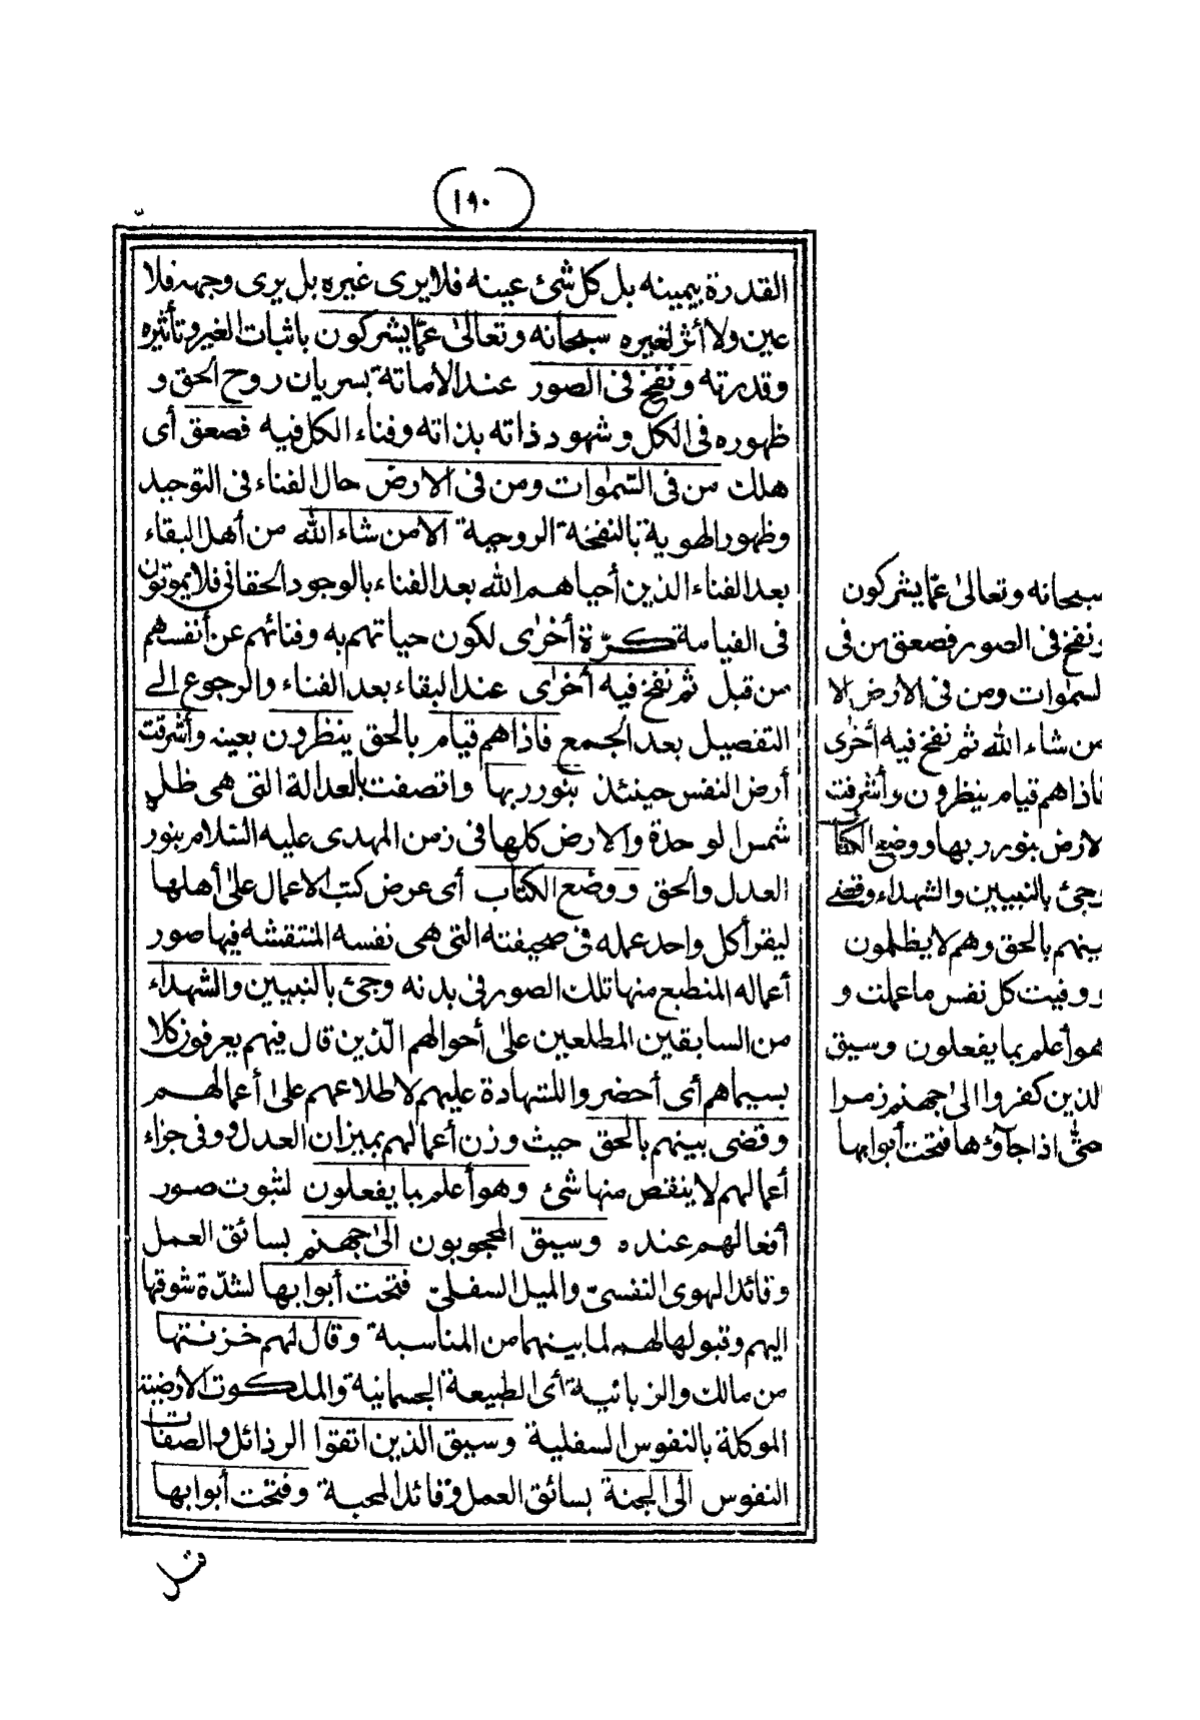 (١٩٠)
القدرة بيمينه بل كل شئ عينه فلا يرى غيره بل يرى وجهه فلا
عين ولا أثر لغيره سبحانه وتعالىٰ عمّا يشركون باثبات الغير وتأثيره
وقدرته ونفخ فى الصور عند الاماتة بسريان روح الحق و
ظهوره فى الكل وشهود ذاته بذاته وفناء الكل فيه فصعق أى
هلك من فى السّمٰوات ومن فى الارض حال الفناء فى التوحيد
وظهور الهوية بالنفخة الروحية الا من شاء الله من أهل البقاء
بعد الفناء الذين أحياهم الله بعد الفناء بالوجود الحقانى فلا يموتون
فى القيامة كرّة أخرٰى لكون حياتهم به وفنائهم عن أنفسهم
من قبل ثم نفخ فيه أخرٰى عند البقاء بعد الفناء والرجوع الى
التفصيل بعد الجمع فاذا هم قيام بالحق ينظرون بعينه وأشرقت
أرض النفس حينئذ بنور ربها واتصفت بالعدالة التى هى ظل
شمس الوحدة والارض كلها فى زمن المهدى عليه السّلام بنور
العدل والحق ووضع الكتاب أى عرض كتب الاعمال علىٰ أهلها
ليقرأ كل واحد عمله فى صحيفته التى هى نفسه المنتقشة فيها صور
أعماله المنطبع منها تلك الصور فى بدنه وجئ بالنبيين والشهداء
من السابقين المطلعين علىٰ أحوالهم الّذين قال فيهم يعرفون كلا
بسيماهم أى أحضروا للشهادة عليهم لاطلاعهم علىٰ أعمالهم
وقضى بينهم بالحق حيث وزن أعمالهم بميزان العدل ووفى جزاء
أعمالهم لا ينقص منها شئ وهو أعلم بما يفعلون لثبوت صور
أفعالهم عنده وسيق المحجوبون الىٰ جهنم بسائق العمل
وقائد الهوى النفسىّ والميل السفلىّ فتحت أبوابها لشدّة شوقها
اليهم وقبولها لهم لما بينهما من المناسبة وقال لهم خزنتها
من مالك والزبانية أى الطبيعة الجسمانية والملكوت الأرضية
الموكلة بالنفوس السفلية وسيق الذين اتقوا الرذائل والصفات
النفوس الى الجنة بسائق العمل وقائد المحبة وفتحت أبوابها
سبحانه وتعالىٰ عمّا يشركون
ونفخ فى الصور فصعق من فى
السمٰوات ومن فى الارض الا
من شاء الله ثم نفخ فيه أخرٰى
فاذا هم قيام ينظرون وأشرقت
الارض بنور ربها ووضع الكتاب
وجئ بالنبيين والشهداء وقضى
بينهم بالحق وهم لا يظلمون
ووفيت كل نفس ما عملت و
هو أعلم بما يفعلون وسيق
الذين كفروا الىٰ جهنم زمرا
حتّٰى اذا جآؤها فتحت أبوابها
قبل